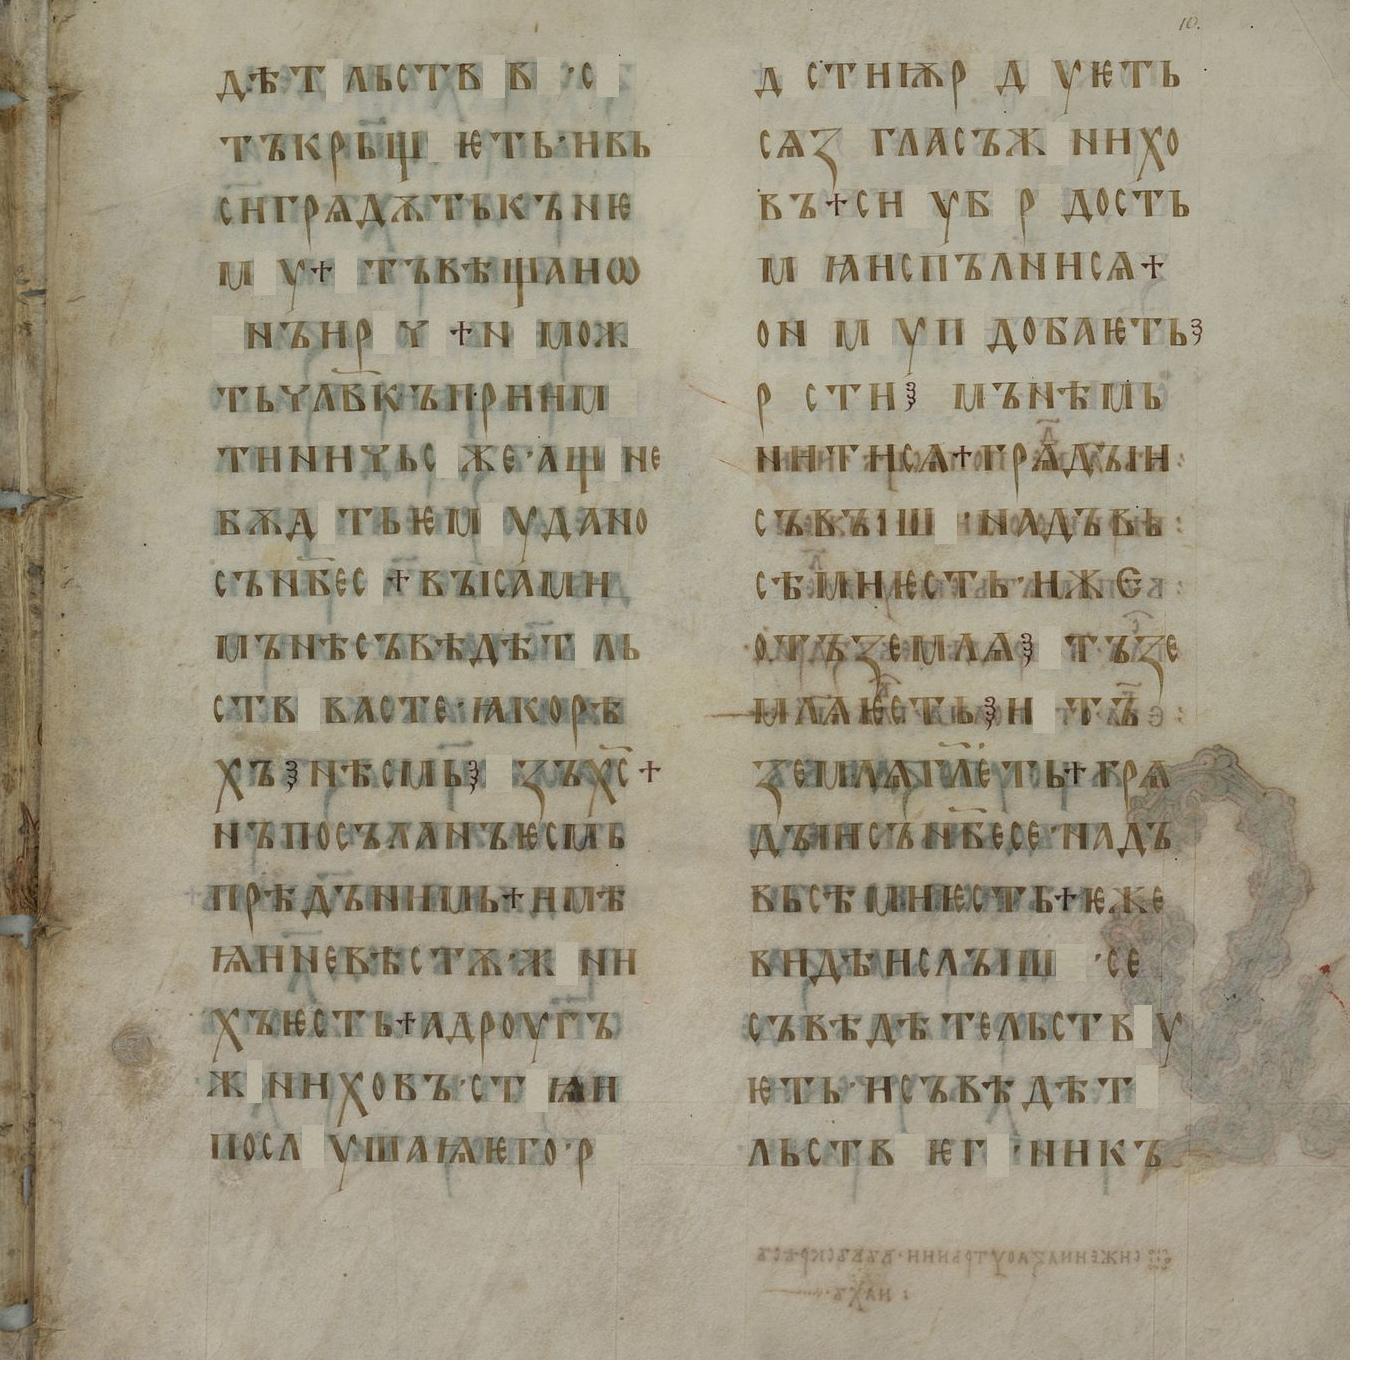 10.
дѣт льств в ·с
тъкрьщ ѥть·нвь
снгрѧдѫтькъню
м у+ тъвѣщанѡ
нънр ү +н мож
тьүл҃вкъпрнѩм
тнннүьс же·ащ не
бѫд тьѥм удано
сън҃бес +въісамн
мънѣсъвѣдѣт ль
ств васте·ꙗкорѣ
хъ҂нѣсмь҂ зъх҃с+
нъпосъланъѥсмь
прѣдъннмь+нмѣ
ꙗнневѣстѫ·ж нн
хъѥсть+адроугъ
ж ннховъ·ст ꙗн
посл ушаꙗѥго·р
д стнѭр д уѥть
сѧз гласъж ннхо
въ+сн уб р дость
м ꙗнспълннсѧ+
он м уп добаѥть
р стн мънѣмь
ннтнсѧ+грѧдъін
съвъіш ·надъвь
сѣмнѥсть·нже
отъземлѧ тъзе
млѧѥсть н тъ
землѧгл҃еть+грѧ
дъінсън҃бесе·надъ
вьсѣмнѥсть+ѥже
вндѣнслъіш ·се
съвѣдѣтельств у
ѥть·нсъвѣдѣт
льств ѥг ·ннкъ